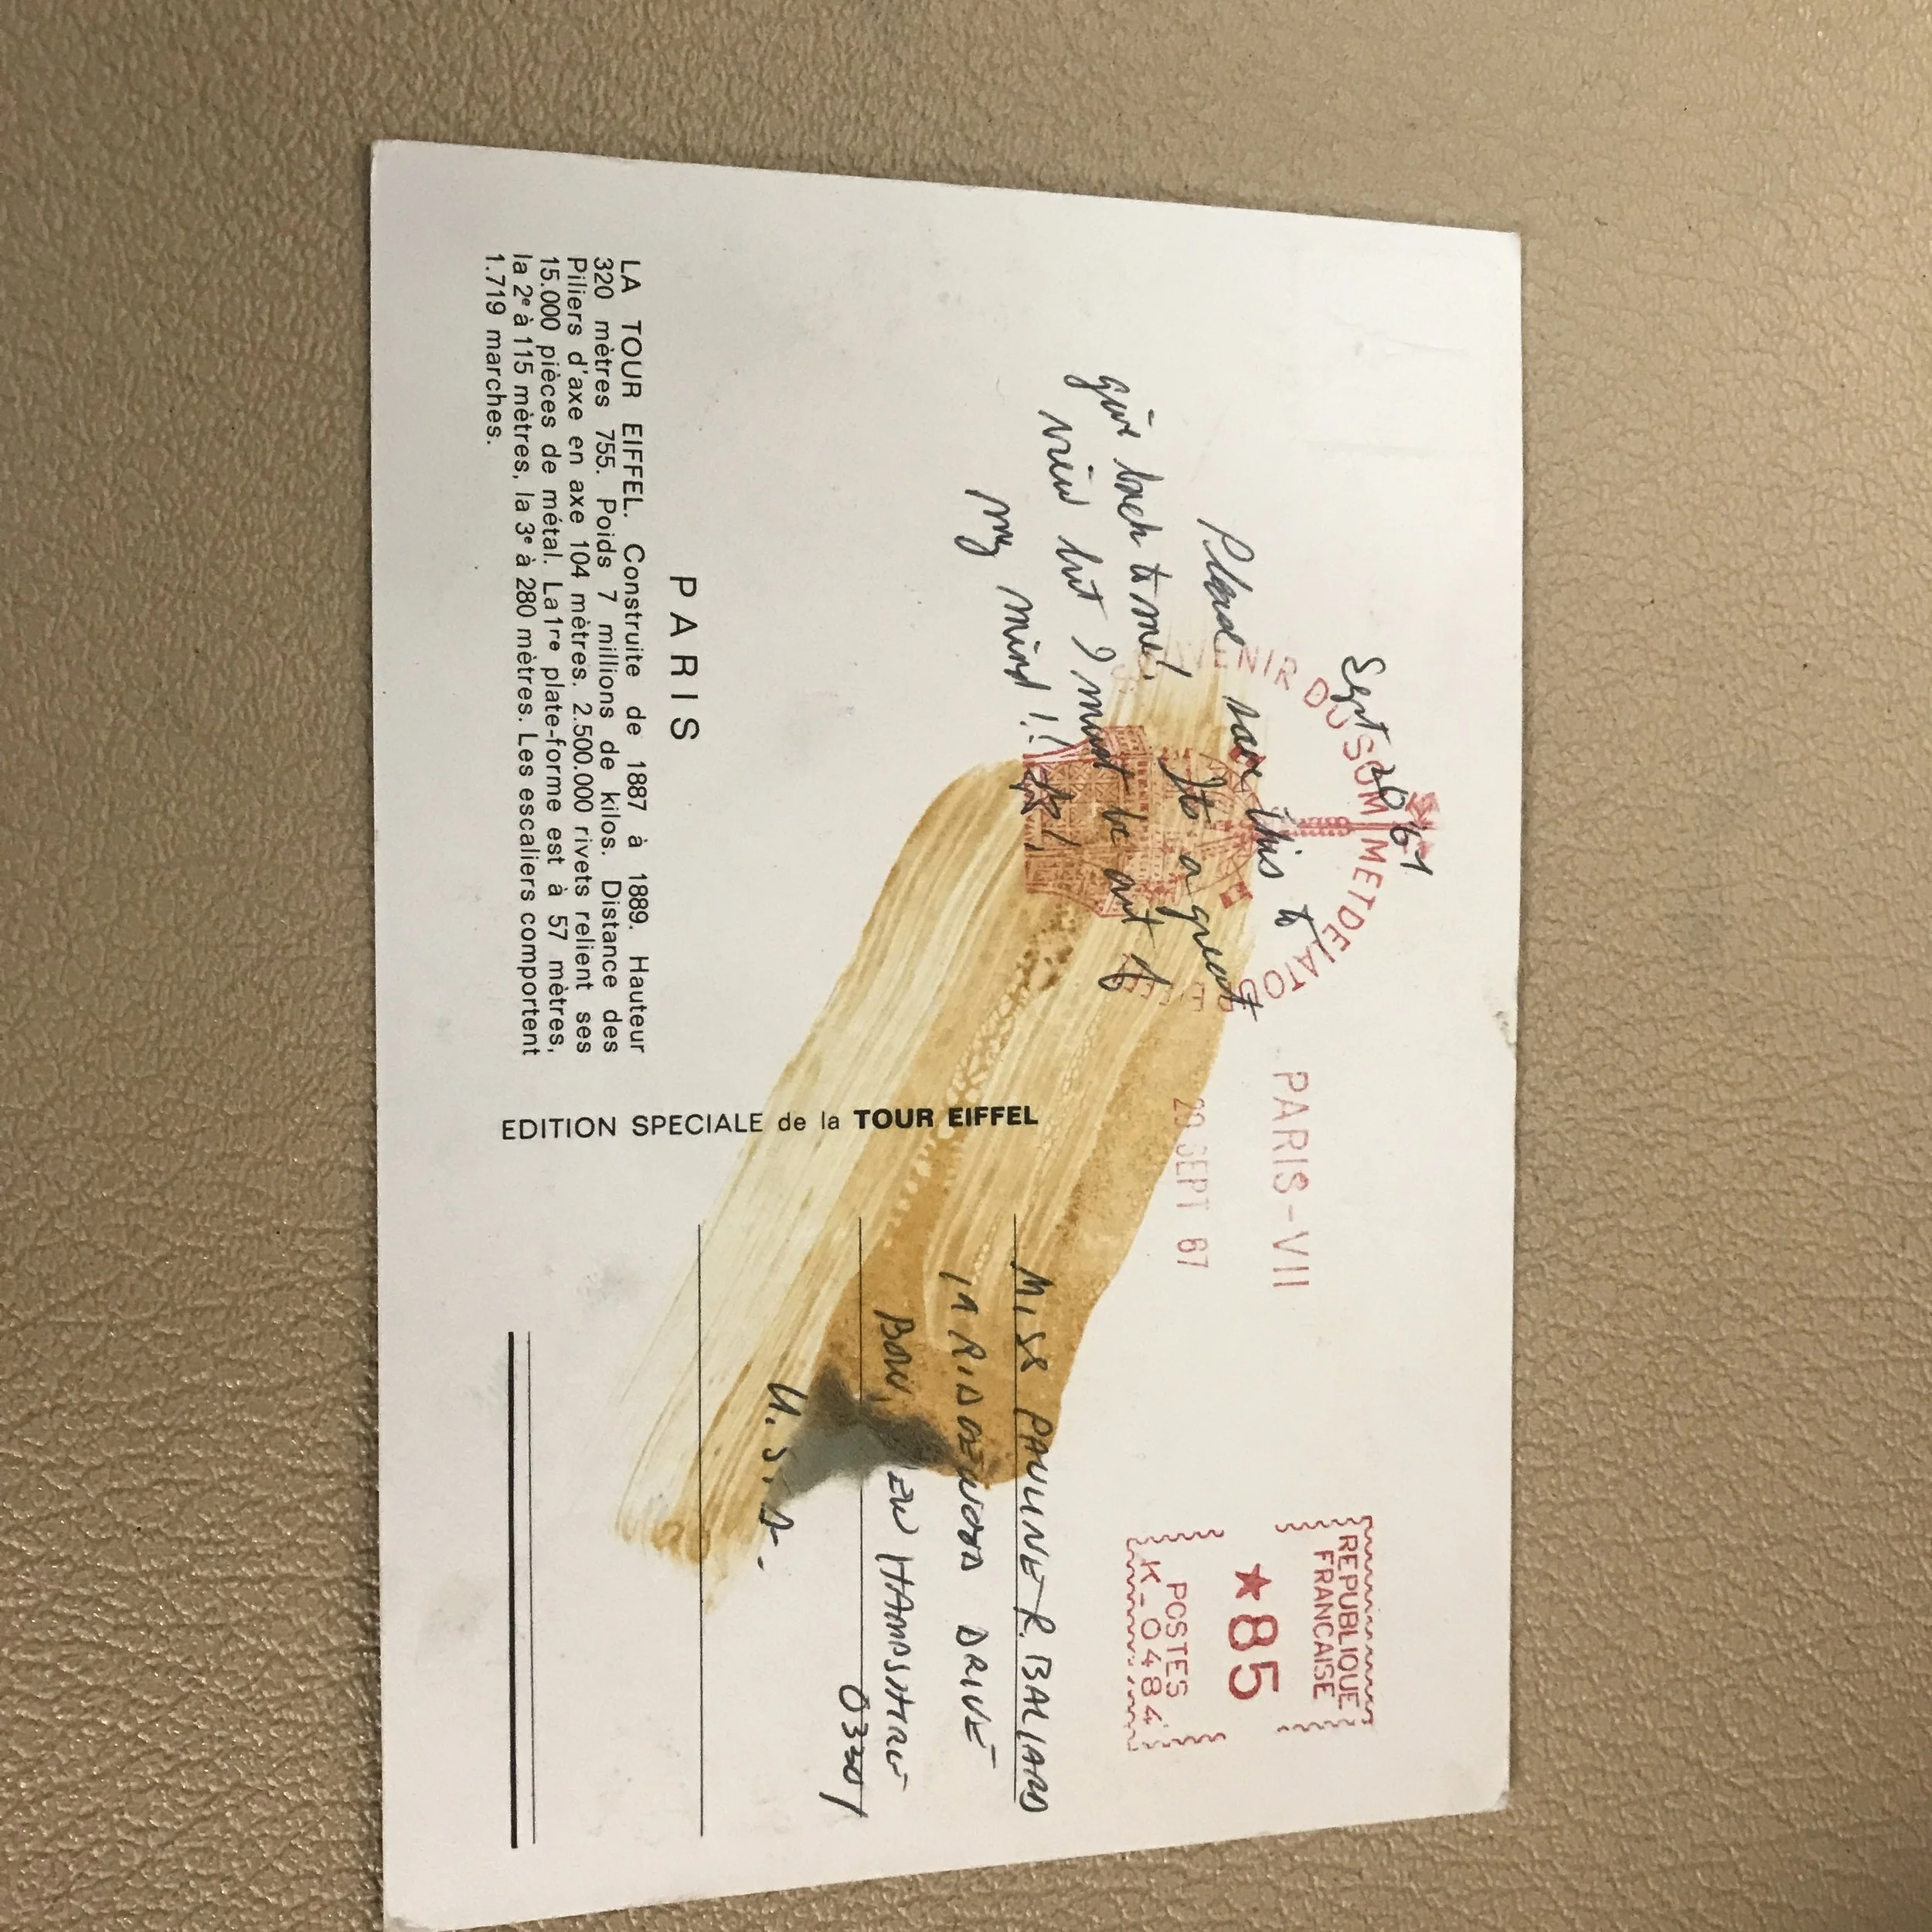 Sept 20 67
Please save this to
give back to me! Its a great
view but I must be out of
my mind!!
PARIS
LA TOUR EIFFEL. Construite de 1887 à 1889. Hauteur
320 mètres 755. Poids 7 millions de kilos. Distance des
Piliers d'axe en axe 104 mètres. 2.500.000 rivets relient ses
15.000 pièces de métal. La 1re plate-forme est à 57 mètres,
la 2e à 115 mètres, la 3e à 280 mètres. Les escaliers comportent
1.719 marches.
EDITION SPECIALE de la TOUR EIFFEL
DU SOMMET DE LA TOUR
PARIS-VII
20 SEPT 67
REPUBLIQUE
FRANCAISE
★85
POSTES
K-0484
MISS PAULINE R. BALLARD
DRIVE
BOW, NEW HAMPSHIRE
03301
U.S.A.